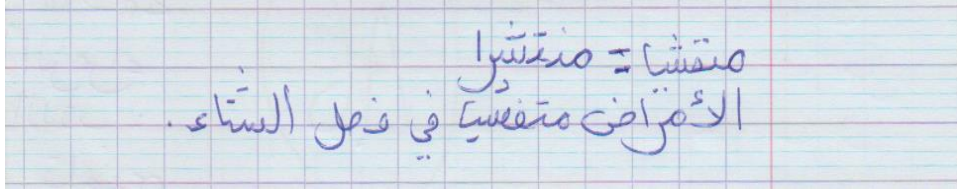 متفشيا = منتشرا
الأمراض متفشيا في فصل الشتاء.